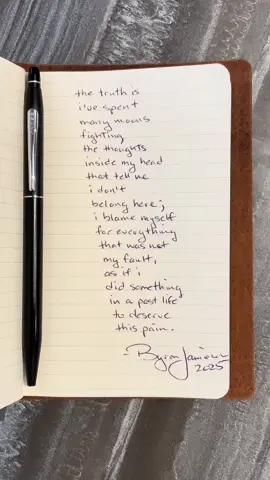 the truth is
i've spent
many moons
fighting
the thoughts
inside my head
that tell me
i don't
belong here;
i blame myself
for everything
that was not
my fault,
as if i
did something
in a past life
to deserve
this pain.
- Byron
2025